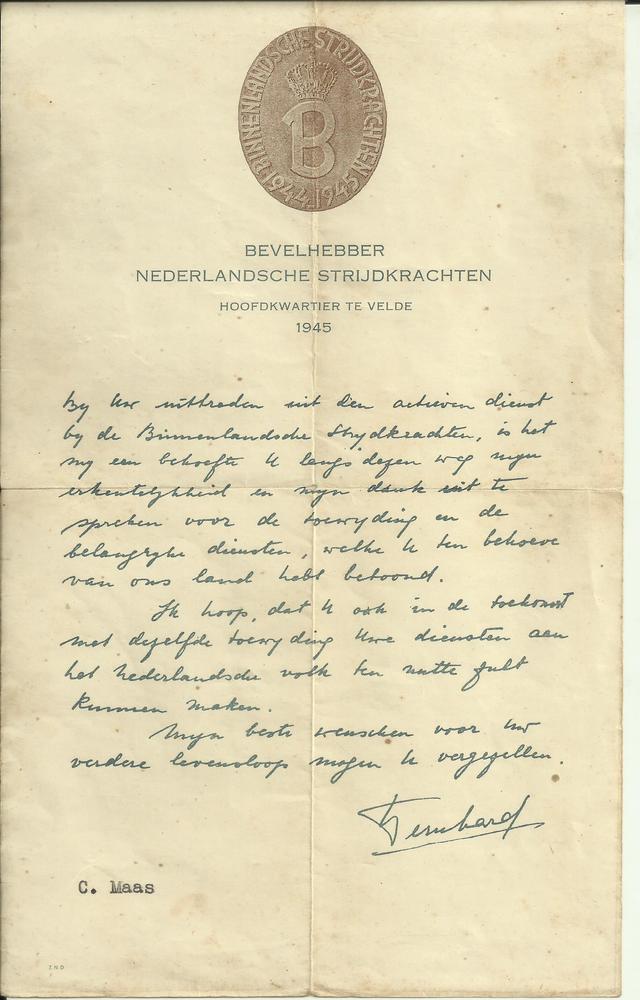 BINNENLANDSCHE STRIJDKRACHTEN
B
1944 1945
BEVELHEBBER
NEDERLANDSCHE STRIJDKRACHTEN
HOOFDKWARTIER TE VELDE
1945
By Uw uittreden uit den actieven dienst
by de Binnenlandsche Strydkrachten, is het
my een behoefte U langs dezen weg myn
erkentelykheid en myn dank uit te
spreken voor de toewyding en de
belangryke diensten, welke U ten behoeve
van ons land hebt betoond.
Ik hoop, dat U ook in de toekomst
met dezelfde toewyding Uwe diensten aan
het Nederlandsche volk ten nutte zult
kunnen maken.
Myn beste wenschen voor Uw
verdere levensloop mogen U vergezellen.
Bernhard
C. Maas
Z.N.D